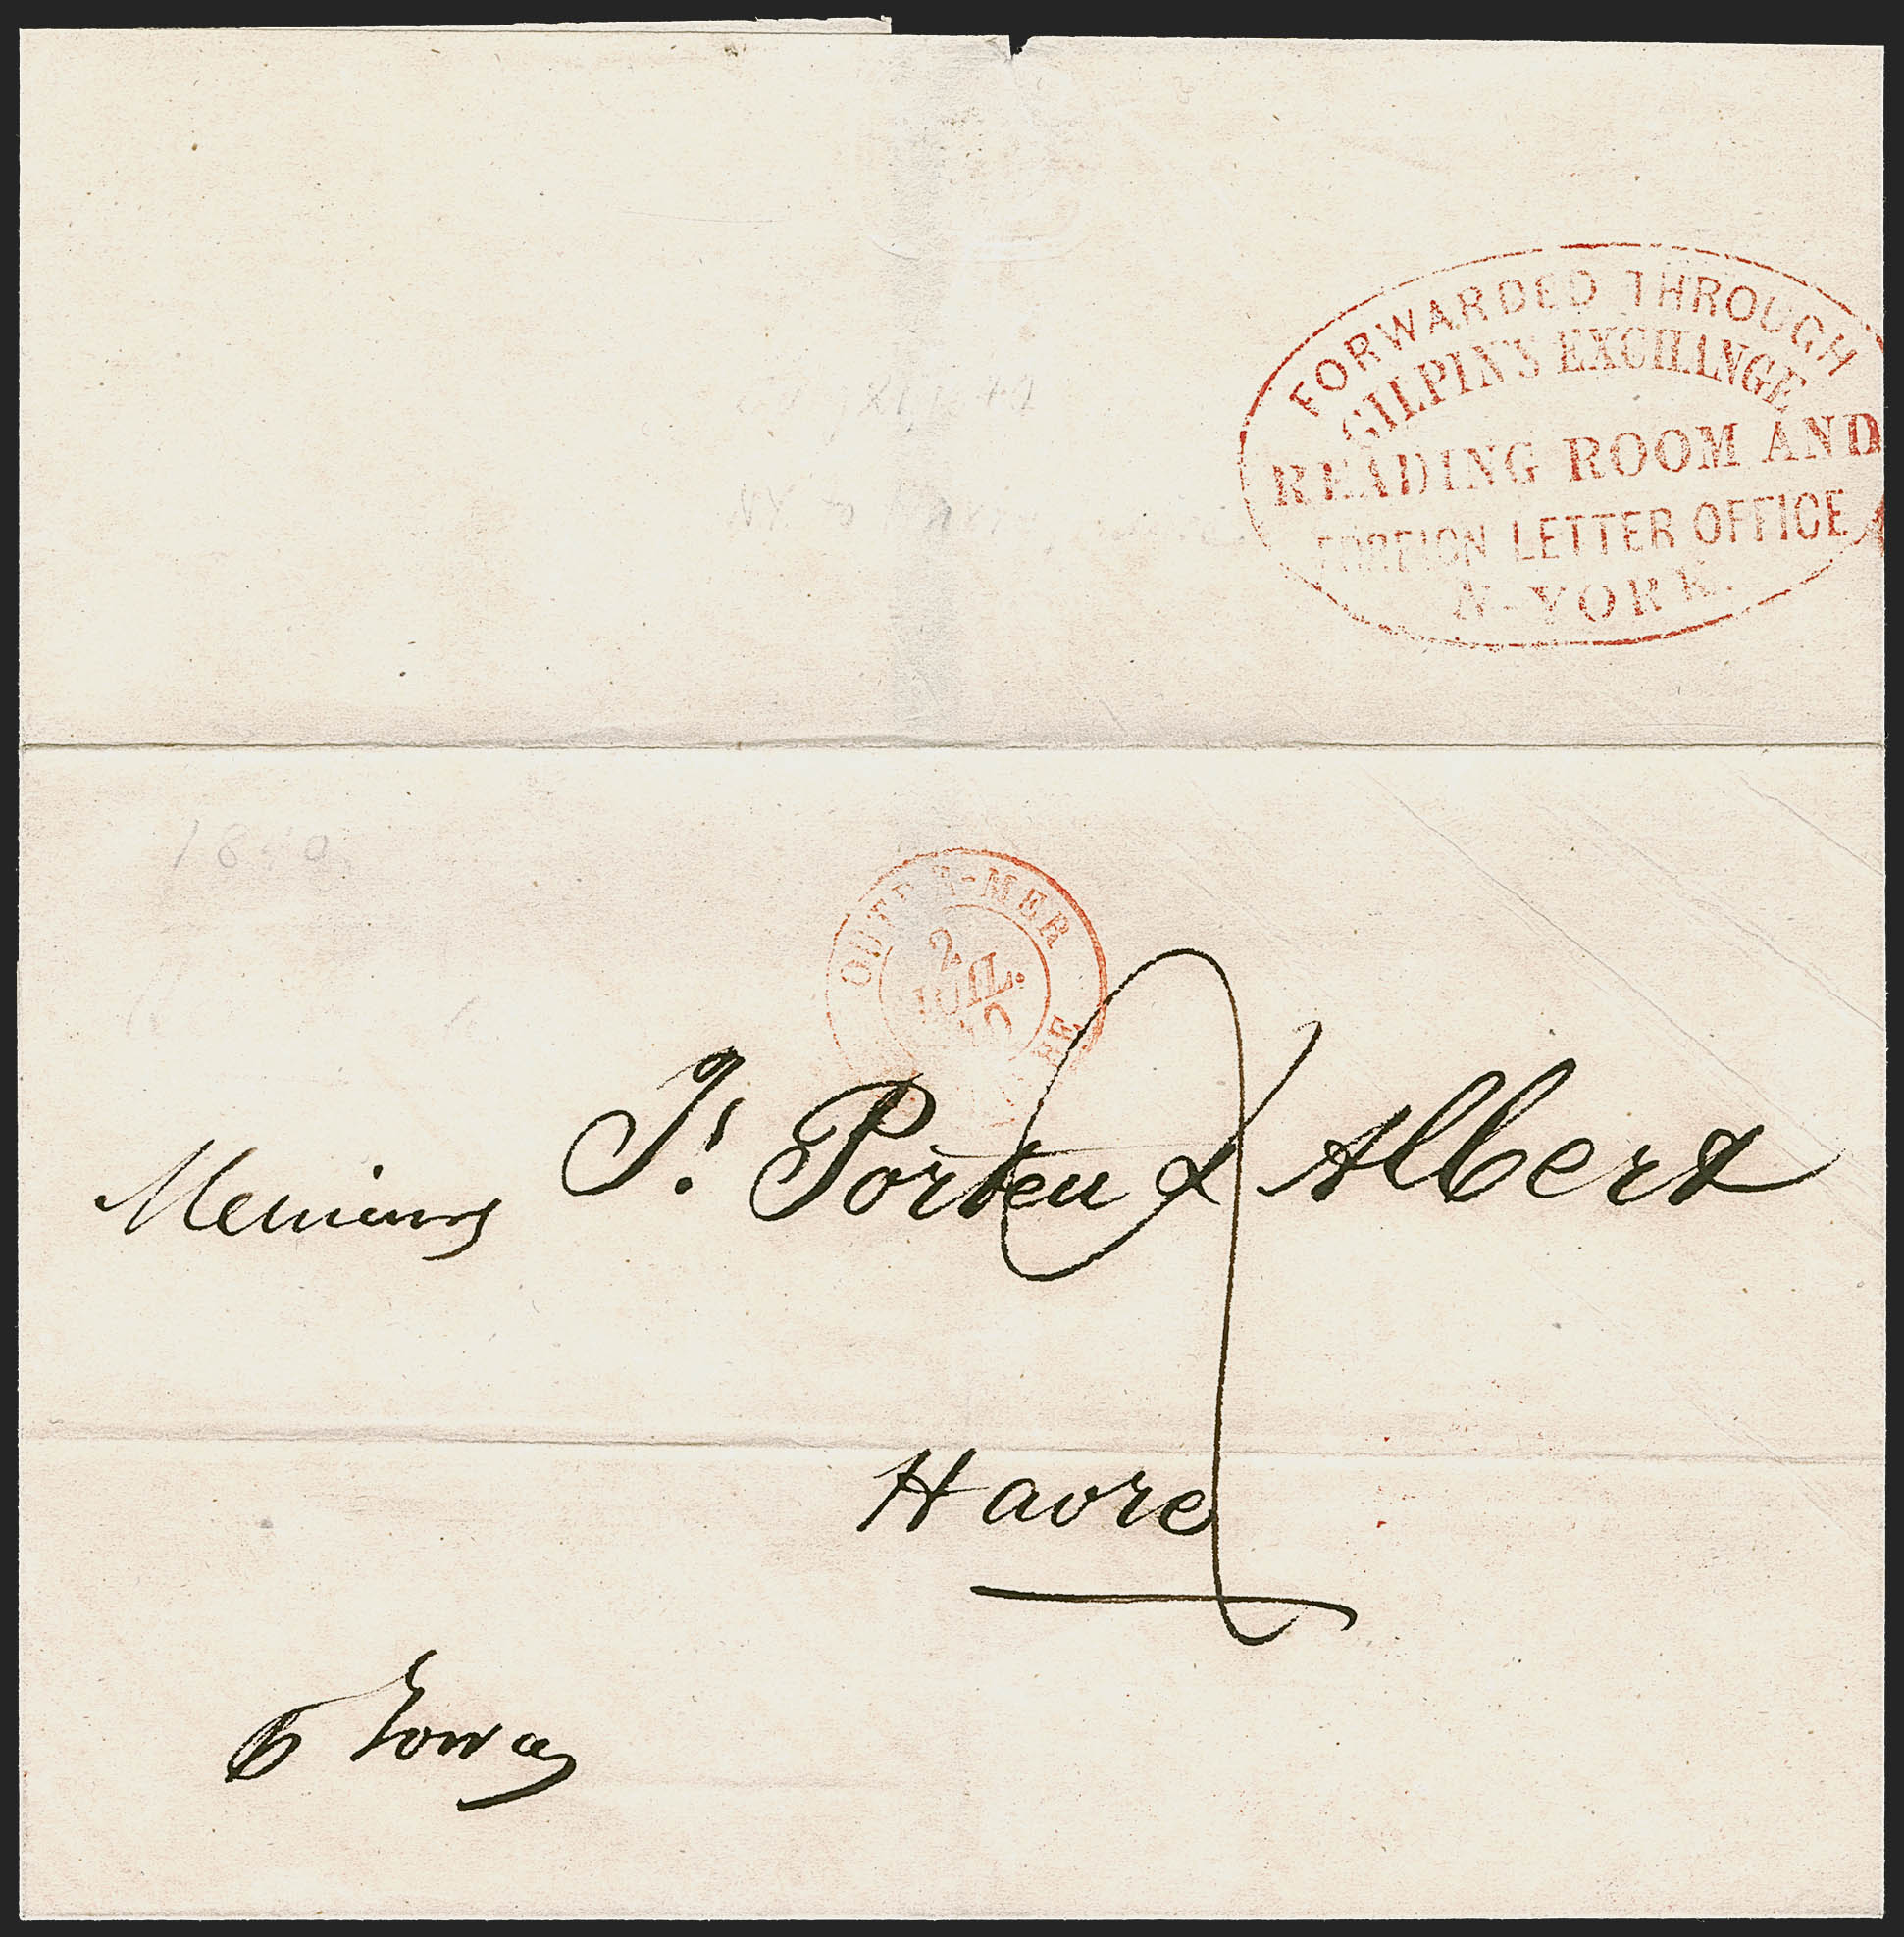 FORWARDED THROUGH
GILPIN'S EXCHANGE
READING ROOM AND
FOREIGN LETTER OFFICE
N-YORK.
NY to
OUTRE-MER
2
JUIL.
40
Messieurs Js. Porteu & Albert
2
Havre
Iowa